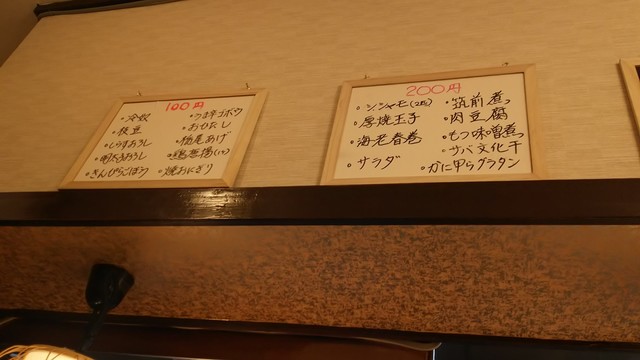 100円
・冷奴
・枝豆
・しらすおろし
・明太おろし
・きんぴらごぼう
・おひたし
・栃尾あげ
・焼おにぎり
200円
・シシャモ(2匹)
・厚焼玉子
・海老春巻
・サラダ
・筑前煮
・肉豆腐
・もつ味噌煮
・サバ文化干
・かに甲らグラタン